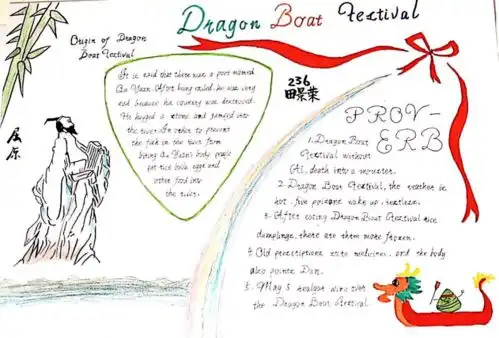 Dragon Boat Festival
Origin of Dragon
Boat Festival
It is said that there was a poet named
Qu Yuan. After being exiled, he was very
sad because his country was destroyed.
He hugged a stone and jumped into
the river. In order to prevent
the fish in the river from
biting Qu Yuan's body, people
put rice balls, eggs and
other food into
the river.
屈
原
236
田景荣
PROV-
ERB
1. Dragon Boat
Festival without
Ai, death into a monster.
2. Dragon Boat Festival, the weather is
hot, five poisons wake up, restless.
3. After eating Dragon Boat Festival rice
dumplings, there are them more frozen.
4. Old practitions medicines, and the body
also points Dan.
5. May 5 realgar wine over
the Dragon Boat Festival